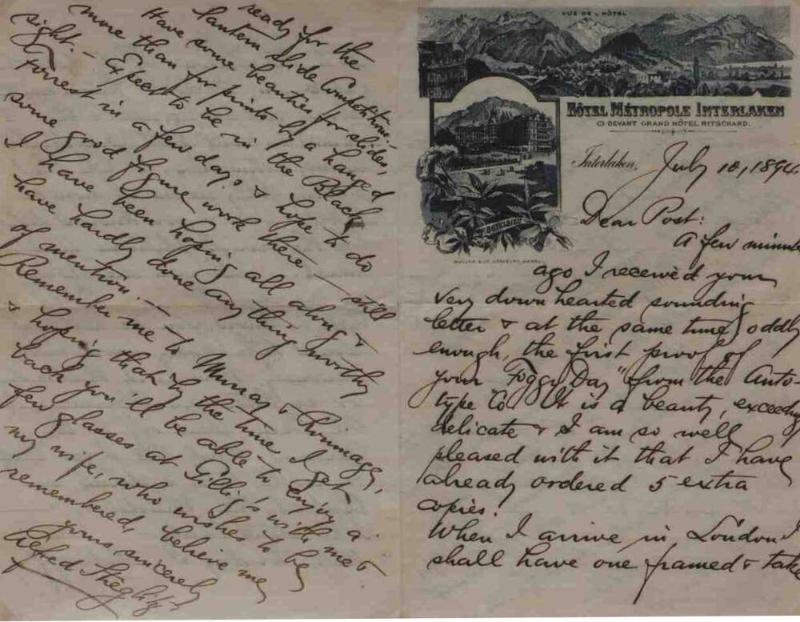 VUE DE L'HÔTEL
HÔTEL MÉTROPOLE INTERLAKEN
CI DEVANT GRAND HÔTEL RITSCHARD.
Interlaken, July 10, 1894.
Dear Post:
A few minute
ago I received your
very down hearted sounding
letter & at the same time, oddly
enough, the first proof of
your "Foggy Day" from the Auto-
type Co. It is a beauty, exceedingly
delicate & I am so well
pleased with it that I have
already ordered 5 extra
copies!
When I arrive in London I
shall have one framed & take
ready for the
lantern slide Competition.—
Have some beauties for slides,
more than for prints by a hanged
sight.— Expect to be in the Black
Forrest in a few days & hope to do
some good figure work there — still
I have been hoping all along &
have hardly done anything worthy
of mention.—
Remember me to Murray &
& hoping that by the time I get
back you'll be able to enjoy a
few glasses at Gillig's with me &
my wife, who wishes to be
remembered, believe me
yours sincerely
Alfred Stieglitz